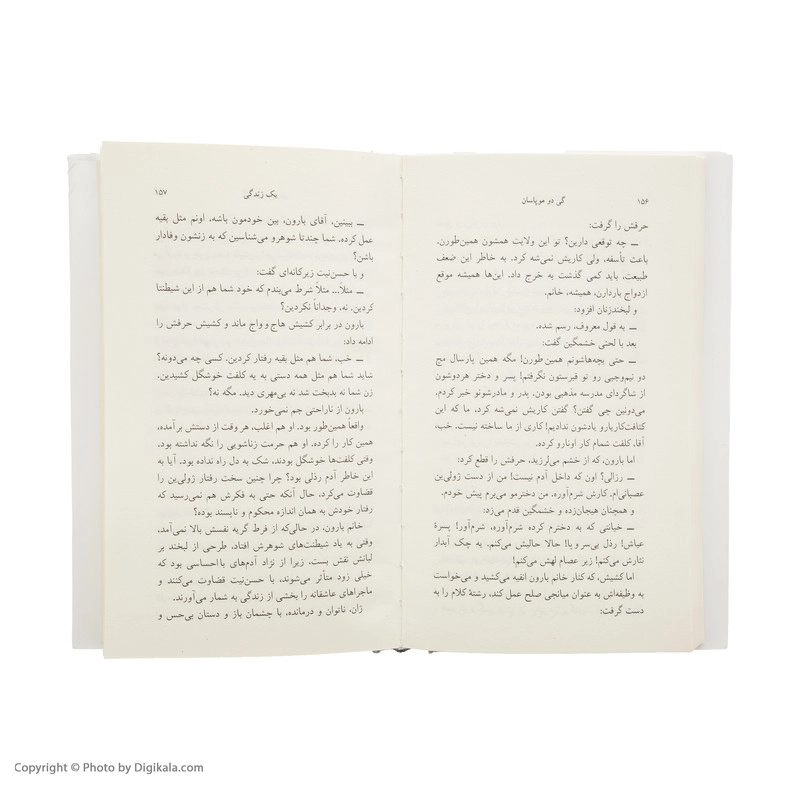 ۱۵۶
گی دو موپاسان
حرفش را گرفت:
ــ چه توقعی دارین؟ تو این ولایت همشون همین‌طورن.
باعث تأسفه، ولی کاریش نمی‌شه کرد. به خاطر این ضعف
طبیعت، باید کمی گذشت به خرج داد. این‌ها همیشه موقع
ازدواج باردارن، همیشه، خانم.
و لبخندزنان افزود:
ــ به قول معروف، رسم شده.
بعد با لحنی خشمگین گفت:
ــ حتی بچه‌هاشونم همین‌طورن! مگه همین پارسال مچ
دو نیم‌وجبی رو تو قبرستون نگرفتم! پسر و دختر هردوشون
از شاگردای مدرسه مذهبی بودن. پدر و مادرشونو خبر کردم.
می‌دونین چی گفتن؟ گفتن کاریش نمی‌شه کرد. ما که این
کثافت‌کاریارو یادشون ندادیم! کاری از ما ساخته نیست. خب،
آقا، کلفت شمام کار اونارو کرده.
اما بارون، که از خشم می‌لرزید، حرفش را قطع کرد:
ــ رزالی؟ اون که داخل آدم نیست! من از دست ژولی‌ین
عصبانی‌ام. کارش شرم‌آوره. من دخترمو می‌برم پیش خودم.
و همچنان هیجان‌زده و خشمگین قدم می‌زد:
ــ خیانتی که به دخترم کرده شرم‌آوره، شرم‌آور! پسرهٔ
عیاش! رذل بی‌سروپا! حالا حالیش می‌کنم. یه چک آبدار
نثارش می‌کنم! زیر عصام لهش می‌کنم!
اما کشیش، که کنار خانم بارون انفیه می‌کشید و می‌خواست
به وظیفه‌اش به عنوان میانجی صلح عمل کند، رشتهٔ کلام را به
دست گرفت:
یک زندگی
۱۵۷
ــ ببینین، آقای بارون، بین خودمون باشه، اونم مثل بقیه
عمل کرده. شما چندتا شوهرو می‌شناسین که به زنشون وفادار
باشن؟
و با حسن‌نیت زیرکانه‌ای گفت:
ــ مثلاً... مثلاً شرط می‌بندم که خود شما هم از این شیطنتا
کردین. نه، وجداناً نکردین؟
بارون در برابر کشیش هاج و واج ماند و کشیش حرفش را
ادامه داد:
ــ خب، شما هم مثل بقیه رفتار کردین. کسی چه می‌دونه؟
شاید شما هم مثل همه دستی به یه کلفت خوشگل کشیدین.
زن شما نه بدبخت شد نه بی‌مهری دید. مگه نه؟
بارون از ناراحتی جم نمی‌خورد.
واقعاً همین‌طور بود. او هم اغلب، هر وقت از دستش برآمده،
همین کار را کرده. او هم حرمت زناشویی را نگه نداشته بود.
وقتی کلفت‌ها خوشگل بودند، شک به دل راه نداده بود. آیا به
این خاطر آدم رذلی بود؟ چرا چنین سخت رفتار ژولی‌ین را
قضاوت می‌کرد، حال آنکه حتی به فکرش هم نمی‌رسید که
رفتار خودش به همان اندازه محکوم و ناپسند بوده؟
خانم بارون، در حالی‌که از فرط گریه نفسش بالا نمی‌آمد،
وقتی به یاد شیطنت‌های شوهرش افتاد، طرحی از لبخند بر
لبانش نقش بست، زیرا از نژاد آدم‌های بااحساسی بود که
خیلی زود متأثر می‌شوند، با حسن‌نیت قضاوت می‌کنند و
ماجراهای عاشقانه را بخشی از زندگی به شمار می‌آورند.
ژان، ناتوان و درمانده، با چشمان باز و دستان بی‌حس و
Copyright © Photo by Digikala.com